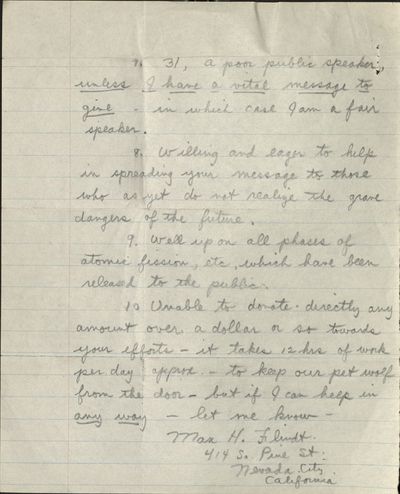 7. 31, a poor public speaker,
unless I have a vital message to
give - in which case I am a fair
speaker.
8. Willing and eager to help
in spreading your message to those
who as yet do not realize the grave
dangers of the future.
9. Well up on all phases of
atomic fission, etc, which have been
released to the public.
10 Unable to donate directly any
amount over a dollar or so towards
your efforts - it takes 12 hrs of work
per day approx. - to keep our pet wolf
from the door - but if I can help in
any way - let me know -
Max H. Flindt.
414 So. Pine St.
Nevada City
California